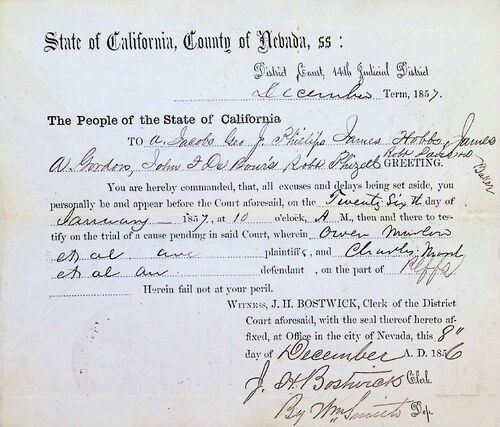 State of California, County of Nevada, ss:
District Court, 14th Judicial District
December Term, 1857.
The People of the State of California
TO A. Jacobs Geo J. Phillips James Hobbs, James
W. Gordon, John Robt GREETING.
Baker
You are hereby commanded, that, all excuses and delays being set aside, you
personally be and appear before the Court aforesaid, on the Twenty Sixth day of
January 1857, at 10 o'clock, A M., then and there to testify
on the trial of a cause pending in said Court, wherein Owen Marlow
et al are plaintiffs, and Charles
et al are defendant , on the part of Plffs
Herein fail not at your peril.
WITNESS, J. H. BOSTWICK, Clerk of the District
Court aforesaid, with the seal thereof hereto af-
fixed, at Office in the city of Nevada, this 8"
day of December A. D. 1856
J. H. Bostwick Clerk.
By Wm Smith Dep.